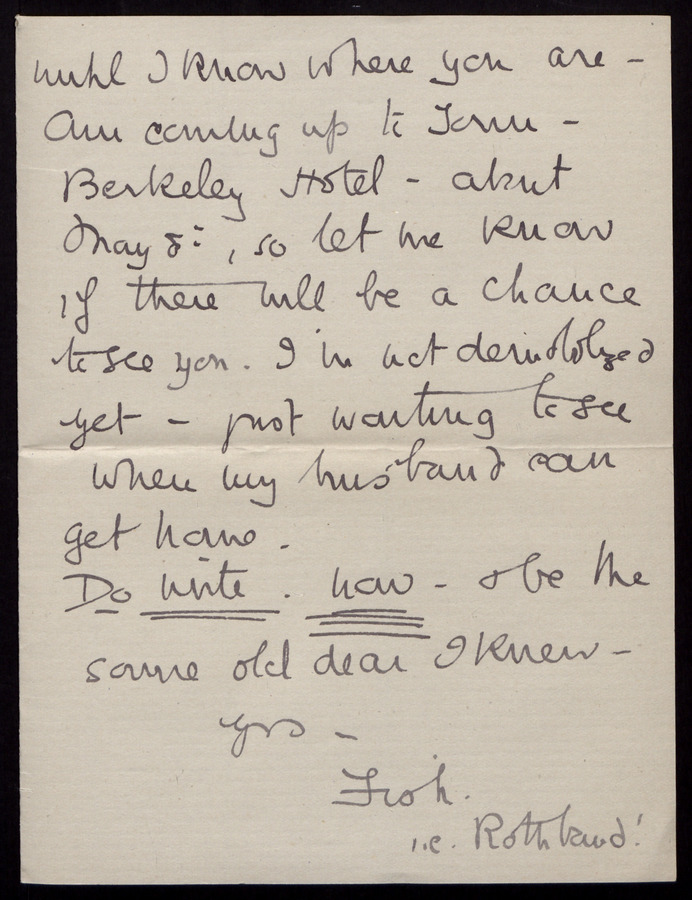 until I know where you are -
Am coming up to Town -
Berkeley Hotel - about
May 8th, so let me know
if there will be a chance
to see you. I'm not demobolized
yet - just waiting to see
when my husband can
get home.
Do write. now - & be the
same old dear I knew -
yrs -
i.e. Rothband!